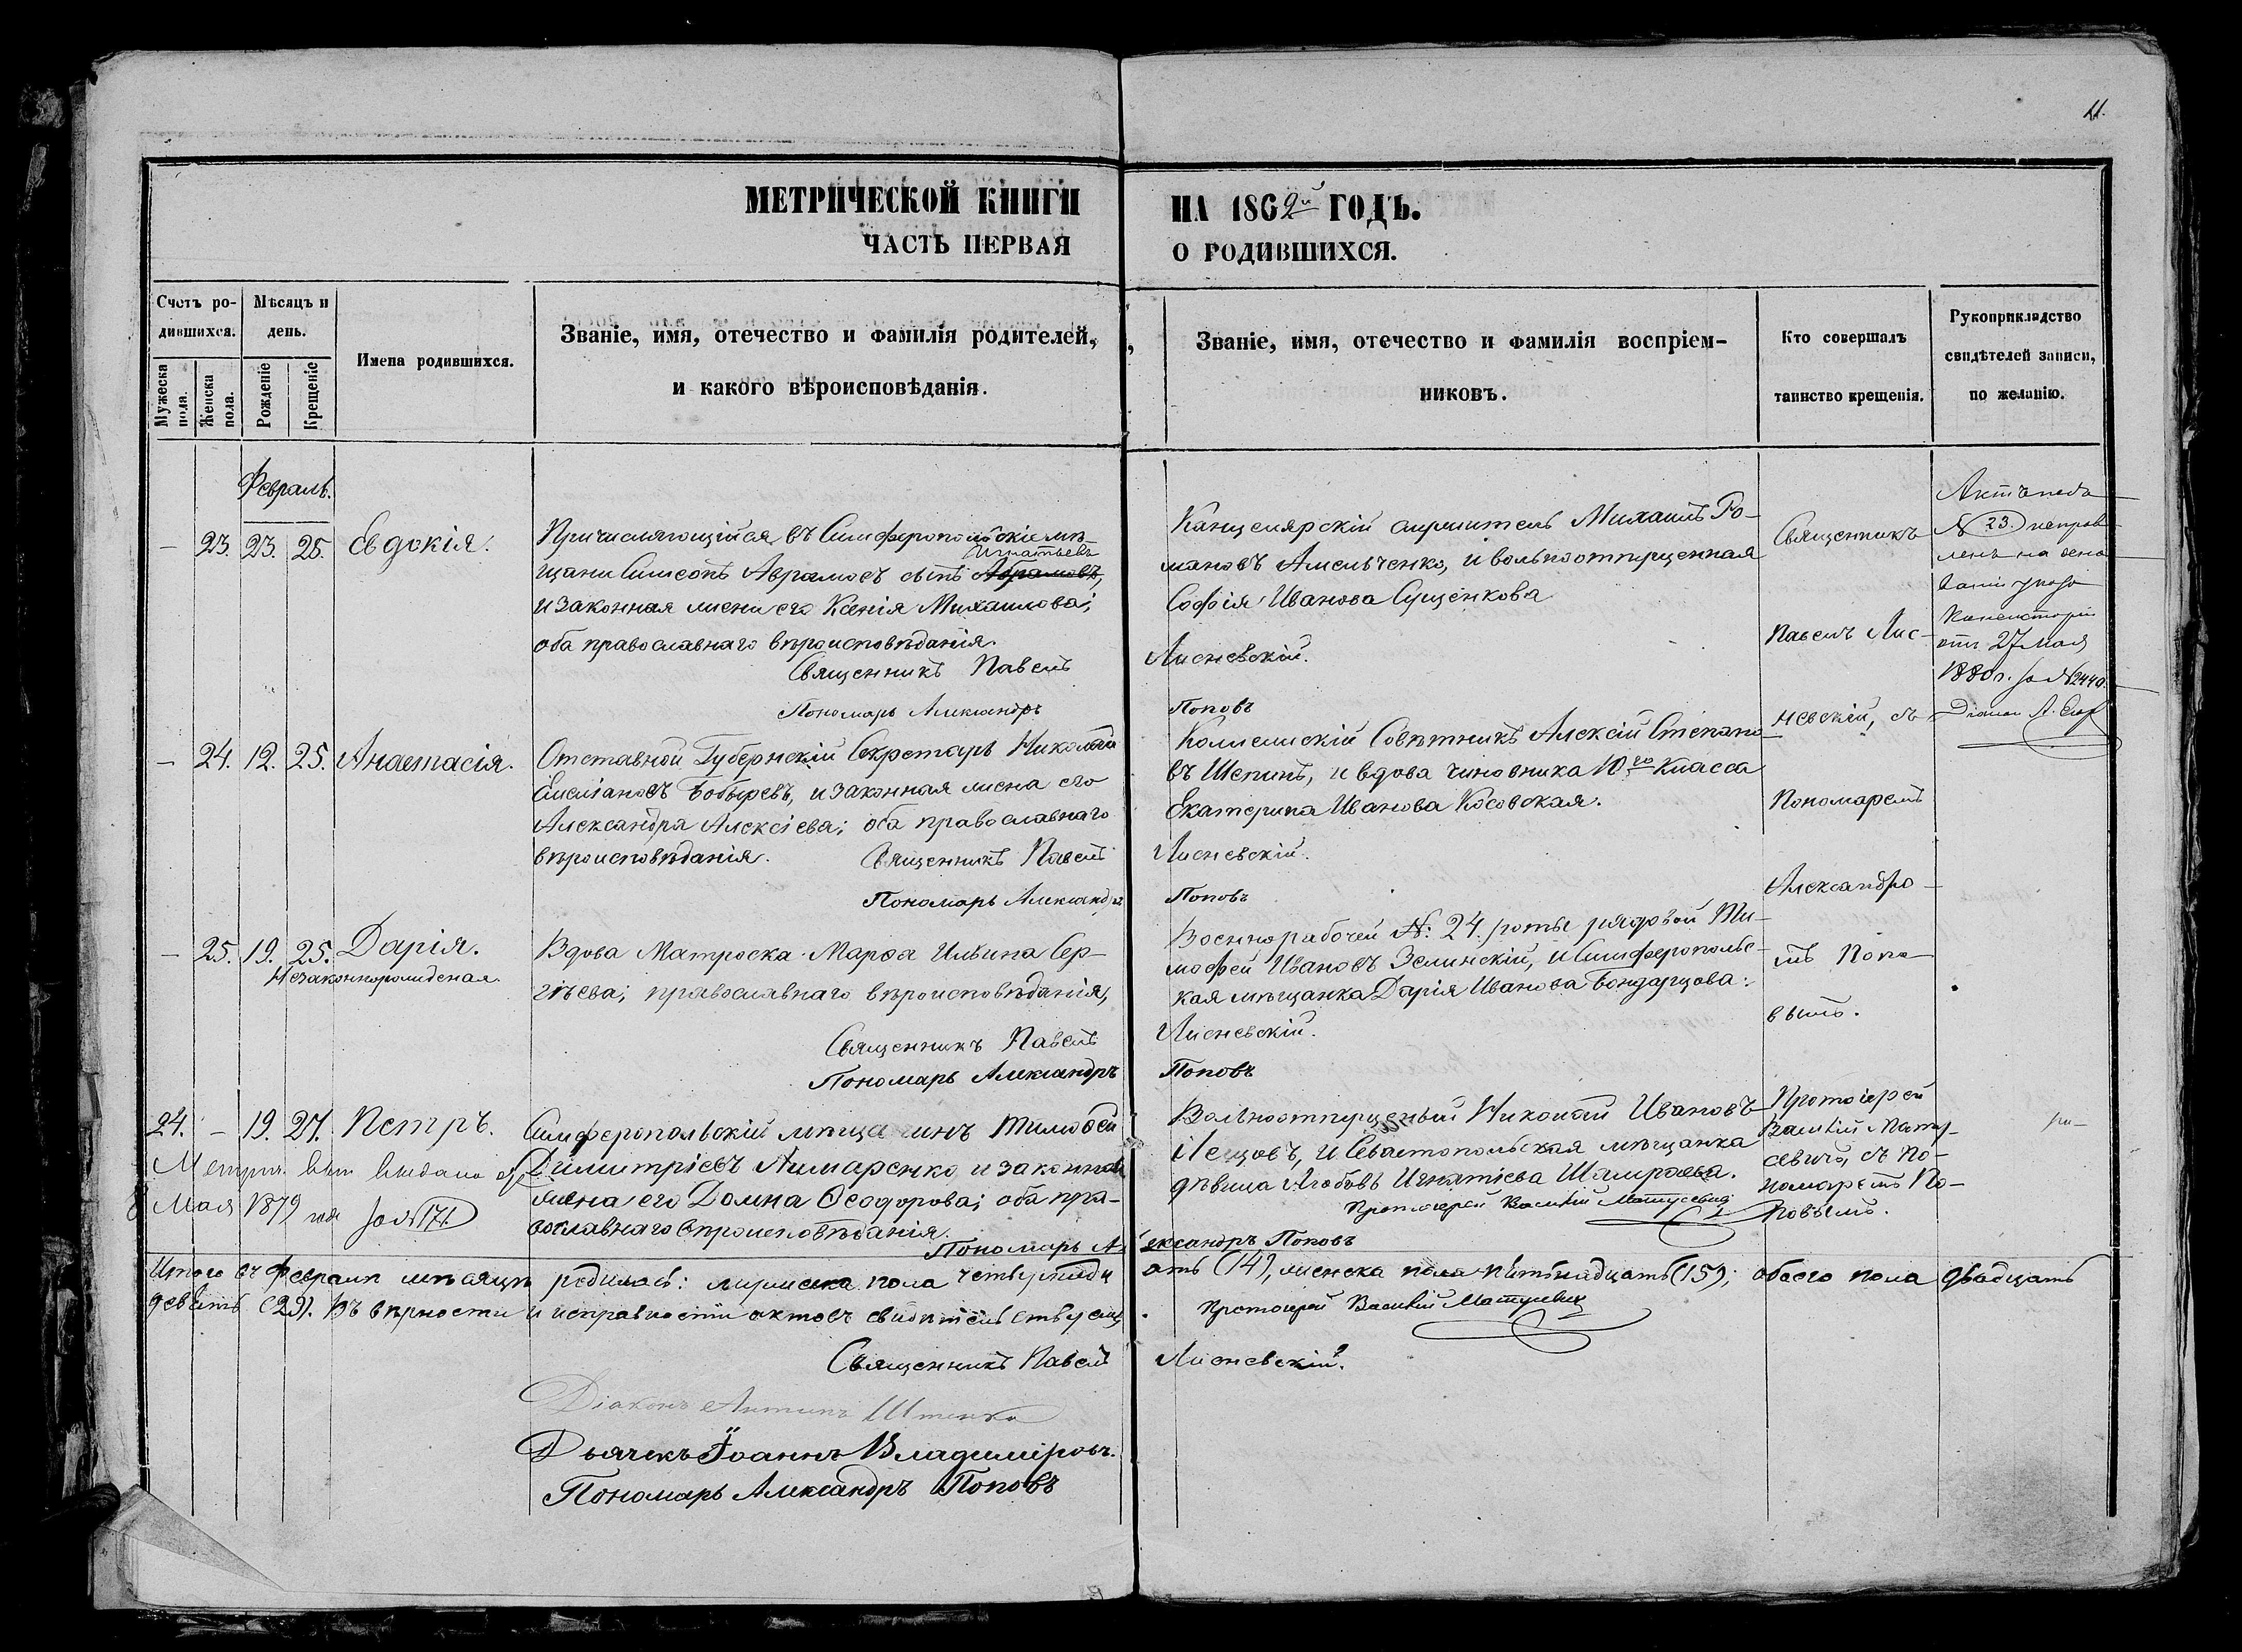 11.
МЕТРИЧЕСКОЙ КНИГИ НА 1862й ГОДЪ.
ЧАСТЬ ПЕРВАЯ О РОДИВШИХСЯ.
Счетъ родившихся.
Мужеска пола.
Женска пола.
Мѣсяцъ и день.
Рожденіе
Крещеніе
Имена родившихся.
Званіе, имя, отечество и фамилія родителей,
и какого вѣроисповѣданія.
Званіе, имя, отечество и фамилія воспріем-
никовъ.
Кто совершалъ
таинство крещенія.
Рукоприкладство
свидѣтелей записи,
по желанію.
Февраль.
– 23. 23. 25. Евдокія.
Причисляющійся въ Симферопольскіе мѣ-
Игнатьевъ
щани Симеонъ Аврамовъ сынъ Абрамовъ,
и законная жена его Ксенія Михаилова;
оба православнаго вѣроисповѣданія.
Священникъ Павелъ
Пономарь Александръ
Канцелярскій служитель Михаилъ Ро-
мановъ Амельченко, и вольноотпущенная
Софія Иванова Сущенкова
Лисневскій.
Поповъ
Священникъ
Павелъ Лис-
невскій, съ
Пономаремъ
Александро-
мъ Попо-
вымъ.
Актъ подъ
№ 23. исправ-
ленъ на осно
ваніи указа
Консисторіи
отъ 27 Мая
1880 г. за № 2440.
– 24. 12. 25. Анастасія.
Отставной Губернскій Секретарь Николай
Емеліановъ Бобыревъ, и законная жена его
Александра Алексіева; оба православнаго
вѣроисповѣданія. Священникъ Павелъ
Пономарь Александръ
Коллежскій Совѣтникъ Алексій Степано-
въ Шепинъ, и вдова чиновника 10го класса
Екатерина Иванова Косовская.
Лисневскій.
Поповъ
– 25. 19. 25. Дарія.
Незаконнорожденая.
Вдова Матроска Марѳа Ильина Сер-
гѣева; православнаго вѣроисповѣданія,
Священникъ Павелъ
Пономарь Александръ
Военнорабочей №: 24. роты рядовой Ти-
мофей Ивановъ Зелинскій, и Симферопольс-
кая мѣщанка Дарія Иванова Бондарцова:
Лисневскій.
Поповъ
24. – 19. 27. Петръ.
Симферопольскій мѣщанинъ Тимоѳей
Димитріевъ Лимаренко и законная
жена его Домна Ѳеодорова; оба пра-
вославнаго вѣроисповѣданія.
Пономарь Александръ Поповъ
Вольноотпущеный Николай Ивановъ
, и Севастопольская мѣщанка
дѣвица Любовь Игнатіева
Протоіерей Василій Матусевич
Протоіерей
Василій Мату-
севичъ, съ По-
номаремъ По-
повымъ.
Метрич. выдано
8 Мая 1879 года за № 171.
Итого въ Февралѣ мѣсяцѣ родилось: мужеска пола четырнадцать (14), женска пола пятьнадцать (15); обоего пола двадцать
девять (29). Въ вѣрности и исправности актовъ свидѣтельствуемъ.
Протоіерей Василій Матусевич
Священникъ Павелъ Лисневскій.
Діаконъ Антипъ
Дьячекъ Іоаннъ Владиміровъ.
Пономарь Александръ Поповъ